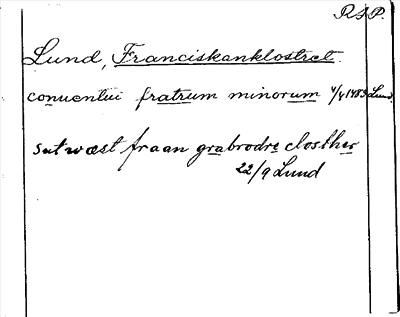 R S P.
Lund, Franciskanklostret.
conuentui fratrum minorum 4/4 1483 Lund.
sut wæst fraan grabrodre closther
22/9 Lund